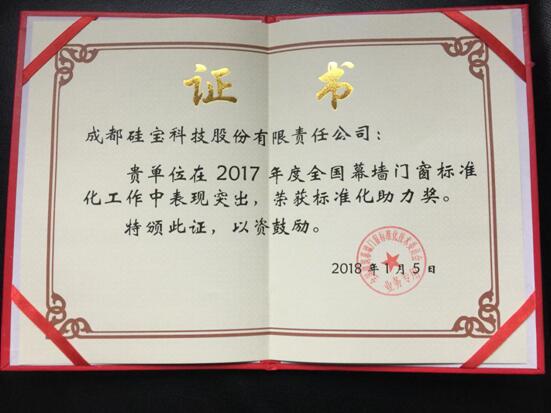 证 书
成都硅宝科技股份有限责任公司：
贵单位在2017年度全国幕墙门窗标准
化工作中表现突出，荣获标准化助力奖。
特颁此证，以资鼓励。
2018年1月5日